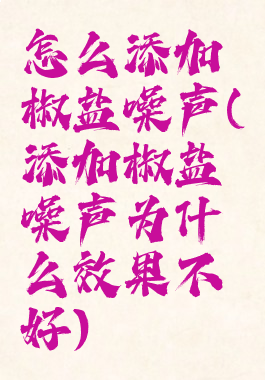 怎么添加
椒盐噪声(
添加椒盐
噪声为什
么效果不
好)